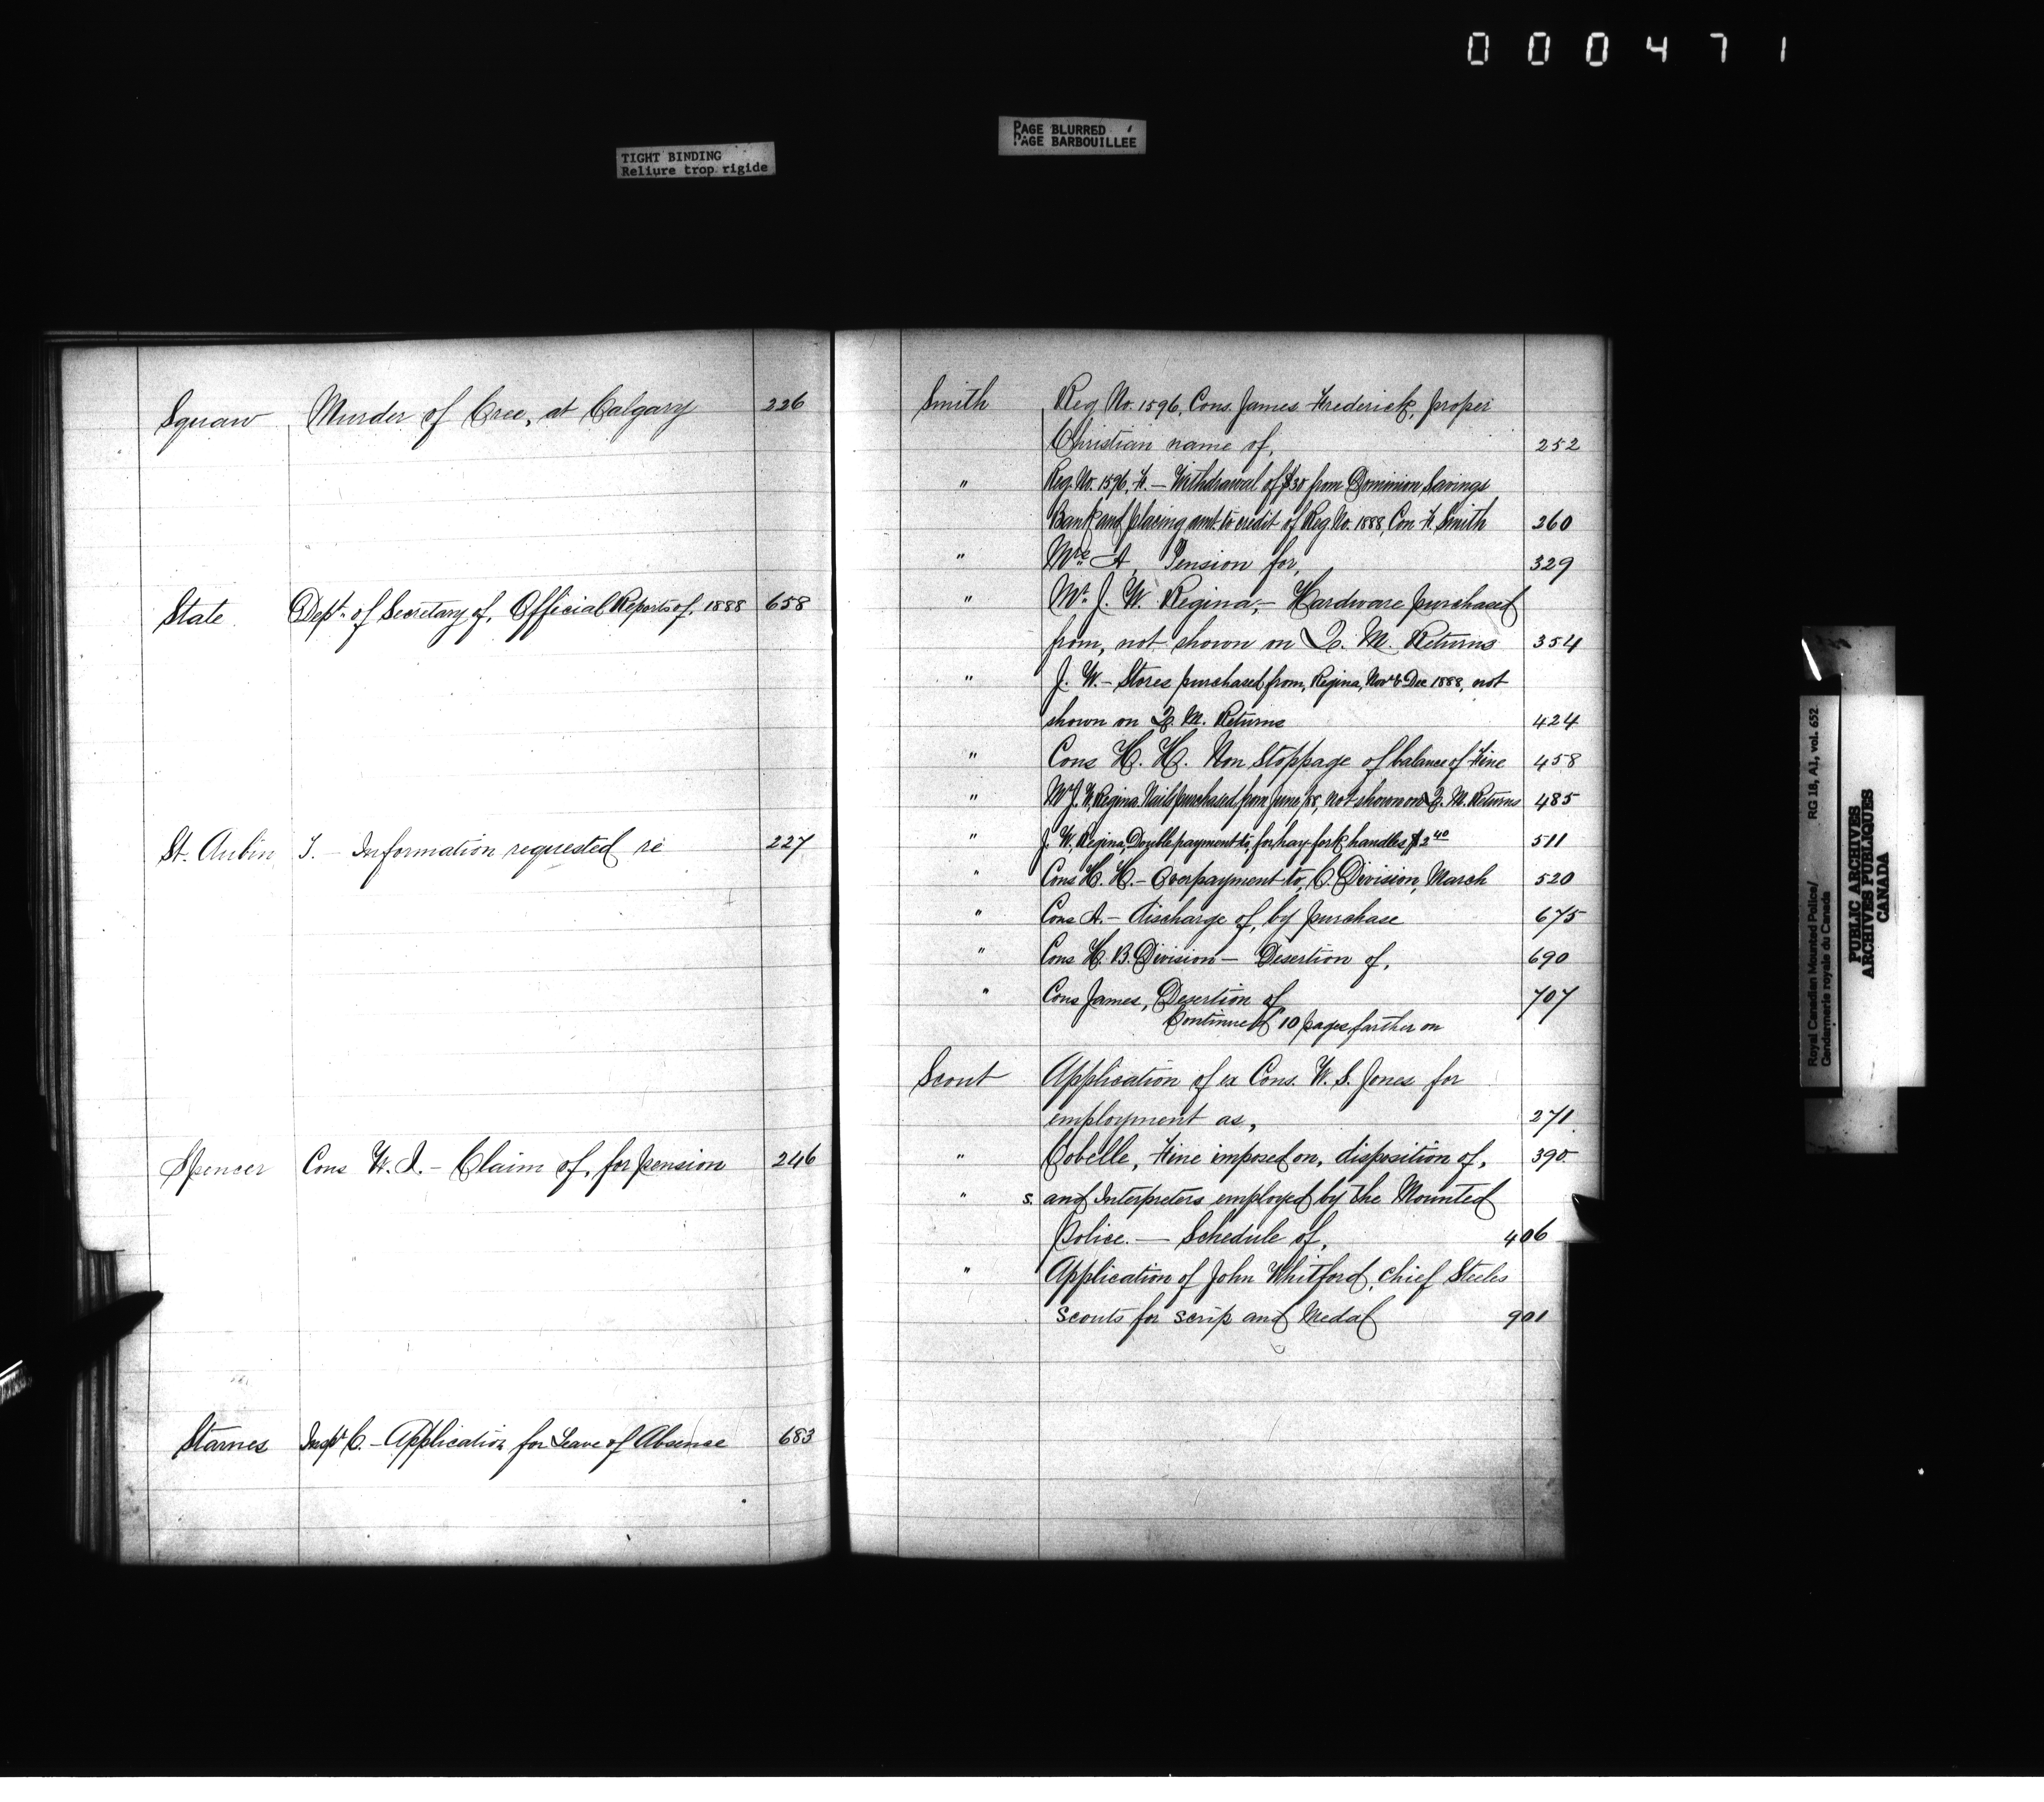 000471
TIGHT BINDING
Reliure trop rigide
PAGE BLURRED
PAGE BARBOUILLÉE
Squaw Murder of Cree, at Calgary 226
State Dept. of Secretary of, Official Reports of, 1888 658
St. Aubin T. — Information requested re 227
Spencer Cons W. I. — Claim of, for pension 246
Starnes Inspr C. — Application for Leave of Absence 683
Smith Reg. No. 1596, Cons. James Frederick, proper
Christian name of, 252
" Reg. No. 1596, F. — Withdrawal of $30 from Dominion Savings
Bank and placing amt to credit of Reg. No. 1888, Con. F. Smith 260
" Mrs A, Pension for, 329
" Mr. J. W. Regina, — Hardware purchased
from, not shown on Q. M. Returns 354
" J. W. — Stores purchased from, Regina, Novr & Dec 1888, not
shown on Q. M. Returns 424
" Cons H. H. Non Stoppage of balance of Fine 458
" Mr J. W. Regina. Nails purchased from June, 88, not shown on Q. M. Returns 485
" J. W. Regina, Double payment to, for hay-fork handles $2 40 511
" Cons H. H. — Overpayment to, C. Division, March 520
" Cons A. — discharge of, by purchase 675
" Cons H. B. Division — Desertion of, 690
" Cons James, Desertion of 707
Continued 10 pages farther on
Scout Application of ex Cons. W. S. Jones for
employment as, 271.
" Cobelle, Fine imposed on, disposition of, 390
" s. and Interpreters employed by the Mounted
Police. — Schedule of, 406
" Application of John Whitford, chief Steeles
Scouts for scrip and Medal 901
Royal Canadian Mounted Police/ RG 18, A1, vol. 652
Gendarmerie royale du Canada
PUBLIC ARCHIVES
ARCHIVES PUBLIQUES
CANADA